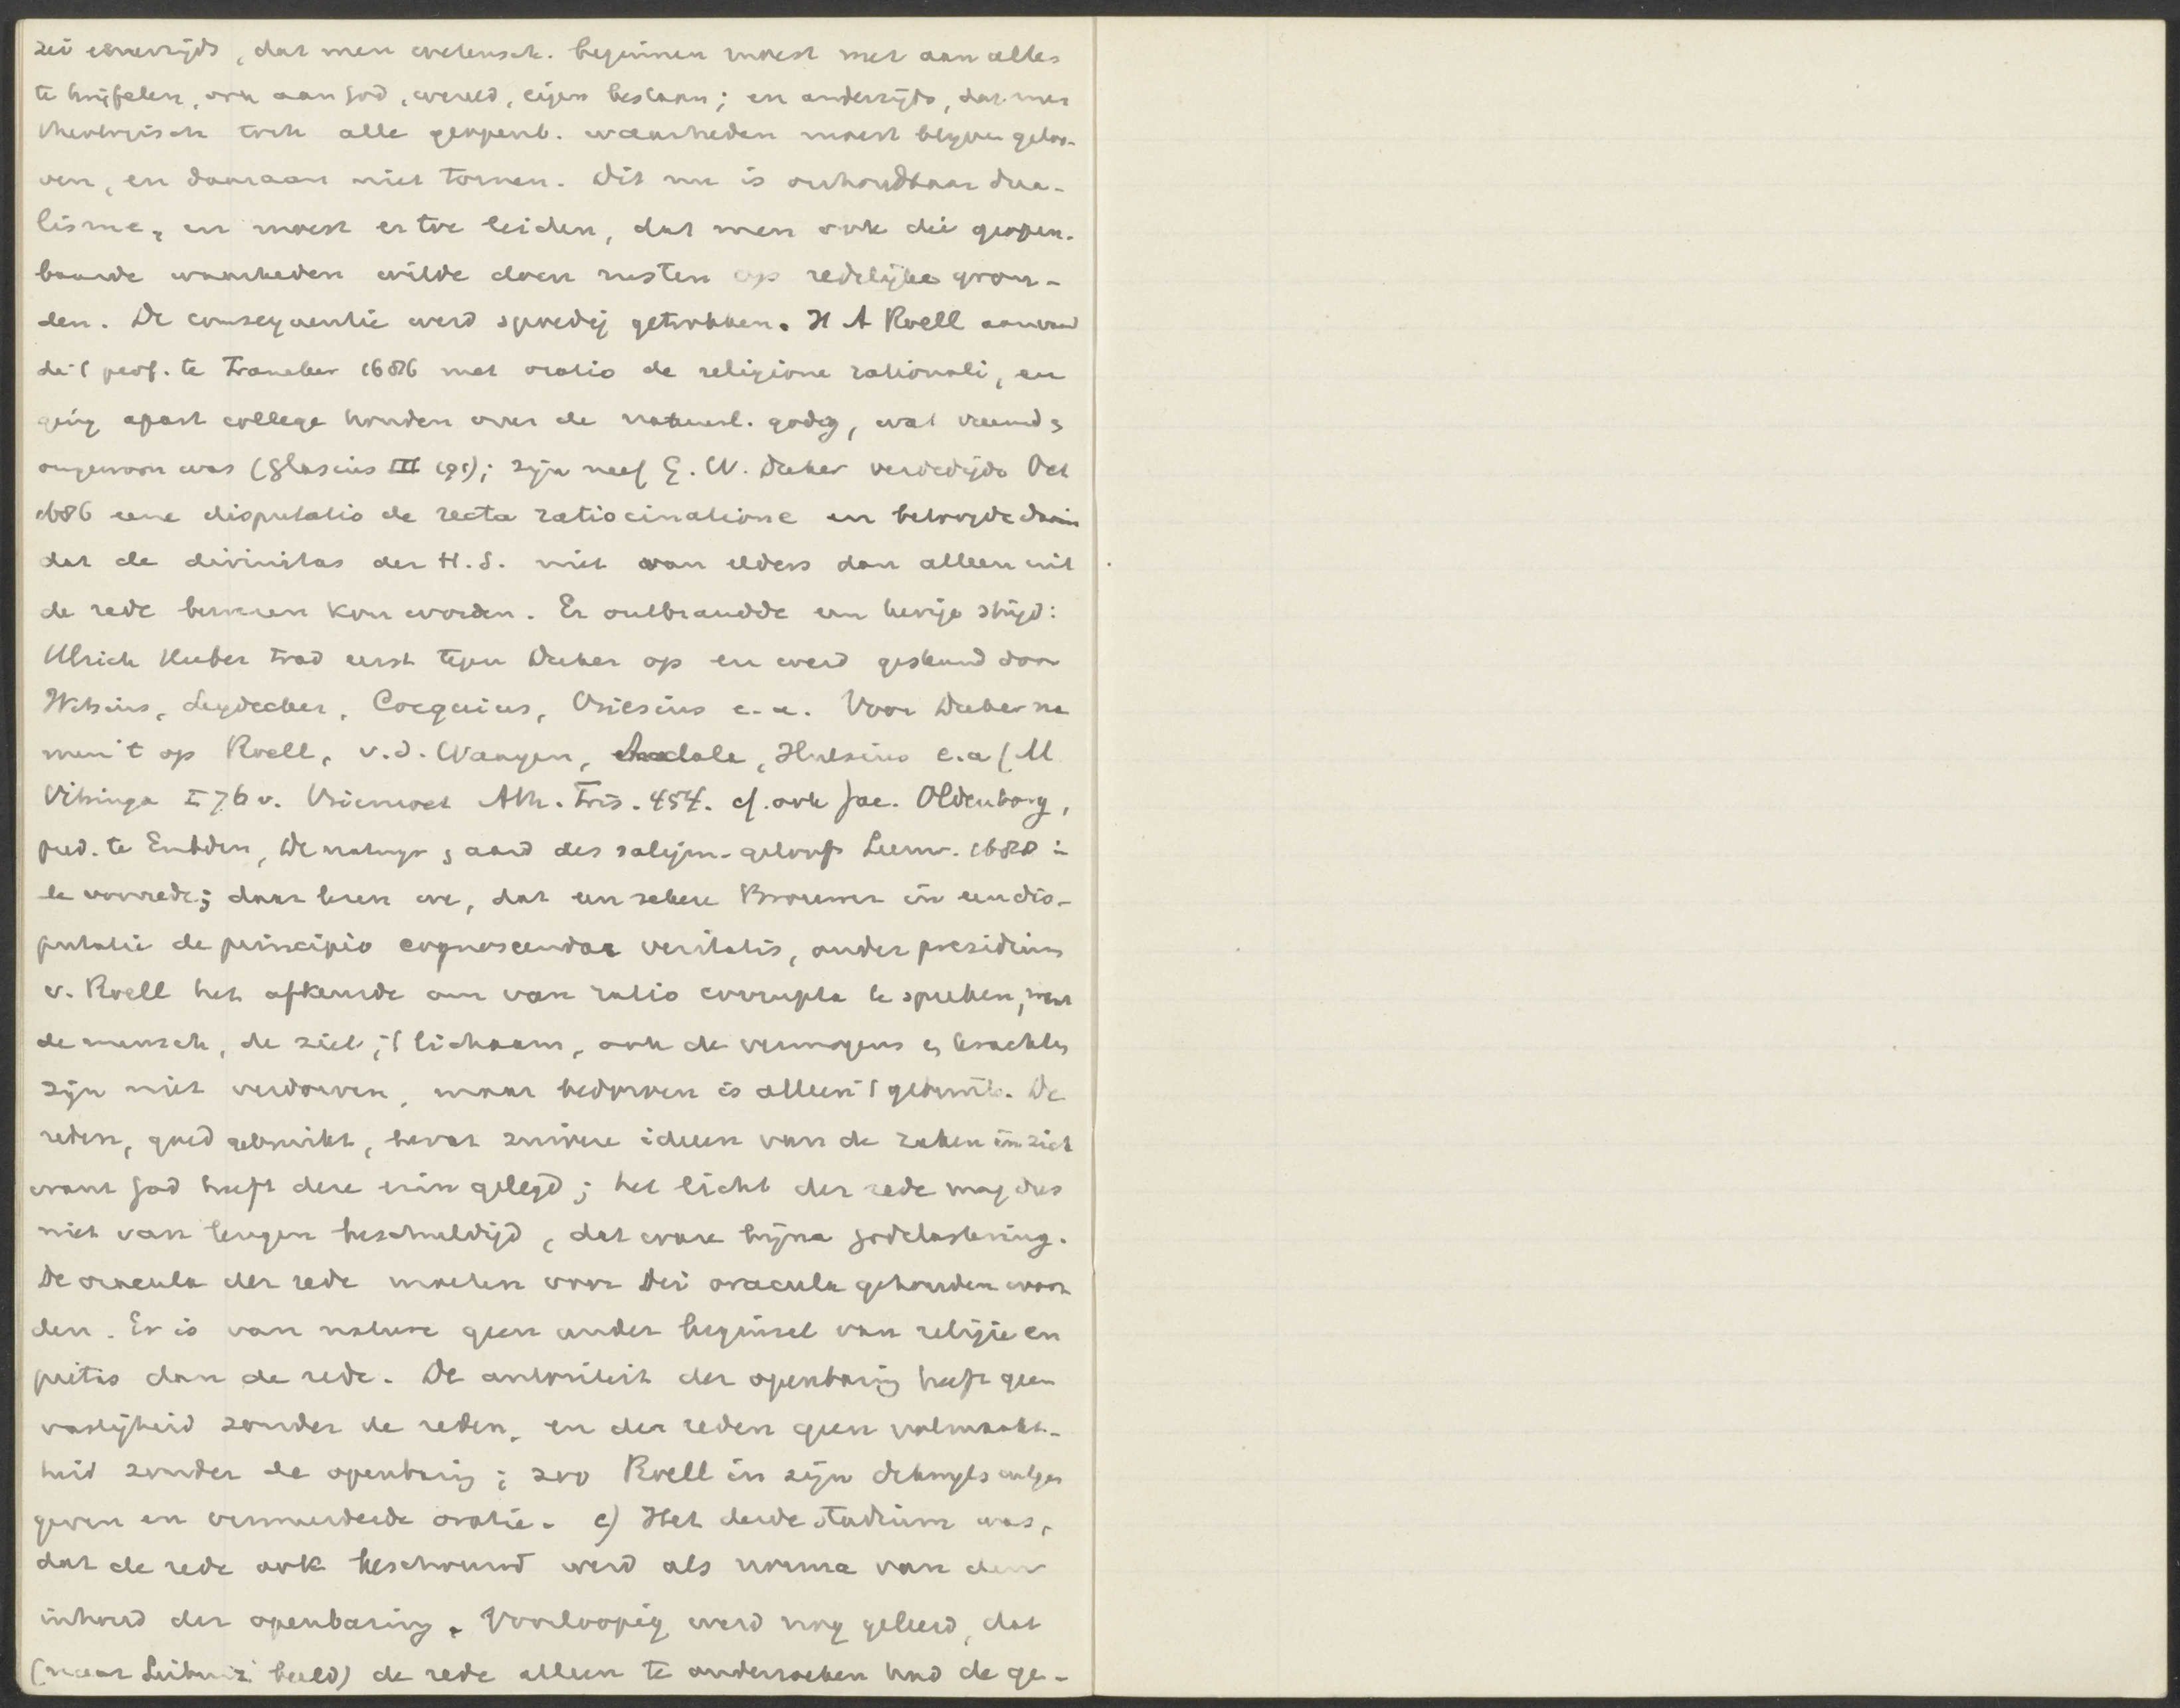 zei eenerzijds, dat men wetensch. beginnen moest met aan alles
te twijfelen, ook aan God, wereld, eigen bestaan; en anderzijds, dat men
theologisch toch alle geopenb. waarheden moest blijven geloo-
ven, en daaraan niet tornen. Dit nu is onhoudbaar dua-
lisme, en moest er toe leiden, dat men ook die geopen-
baarde waarheden wilde doen rusten op redelijke gron-
den. De consequentie werd spoedig getrokken. H A Roell aanvaard
de 't prof. te Franeker 1686 met oratio de religione rationali, en
ging apart college houden over de natuurl. godg, wat vreemd &
ongewoon was (Glasius III 191); zijn neef G. W. Duker verdedigde Oct
1686 eene disputatio de recta ratiocinatione en betoogde daarin
dat de divinitas der H.S. niet van elders dan alleen uit
de rede bewezen kon worden. Er ontbrandde een hevige strijd:
Ulrich Huber trad eerst tegen Duker op en werd gesteund door
Witsius, Leydecker, Cocquius, Vriesius e.a. Voor Duker na
men 't op Roell, v.d. Waeyen, Andala, Hulsius e.a (M
Vitringa I 76 v. Vriemoet Ath. Fris. 454. cf. ook Jac. Oldenborg,
pred. te Embden, De natuyr & aard des saligm. geloofs Leeuw. 1688 in
de voorrede; daar lezen we, dat een zekere Brouwer in een dis-
putatie de principio cognoscendae veritatis, onder presidium
v. Roell het afkeurde om van ratio corrupta te spreken, want
de mensch, de ziel, 't lichaam, ook de vermogens & krachten
zijn niet verdorven, maar bedorven is alleen 't gebruik. De
reden, goed gebruikt, bevat zuivere ideeen van de zaken in zich
want God heeft deze erin gelegd; het licht der rede mag dus
niet van leugen beschuldigd, dat ware bijna godslastering.
De oracula der rede moeten voor Dei oracula gehouden wor
den. Er is van nature geen ander beginsel van religie en
pietas dan de rede. De autoriteit der openbaring heeft geen
vastigheid zonder de reden, en der reden geen volmaakt-
heid zonder de openbaring; zoo Roell in zijn uitge
geven en vermeerderde oratie. c) Het derde stadium was,
dat de rede ook beschouwd werd als norma van den
inhoud der openbaring. Voorloopig werd nog geleerd, dat
(naar Leibniz' beeld) de rede alleen te onderzoeken had de ge-